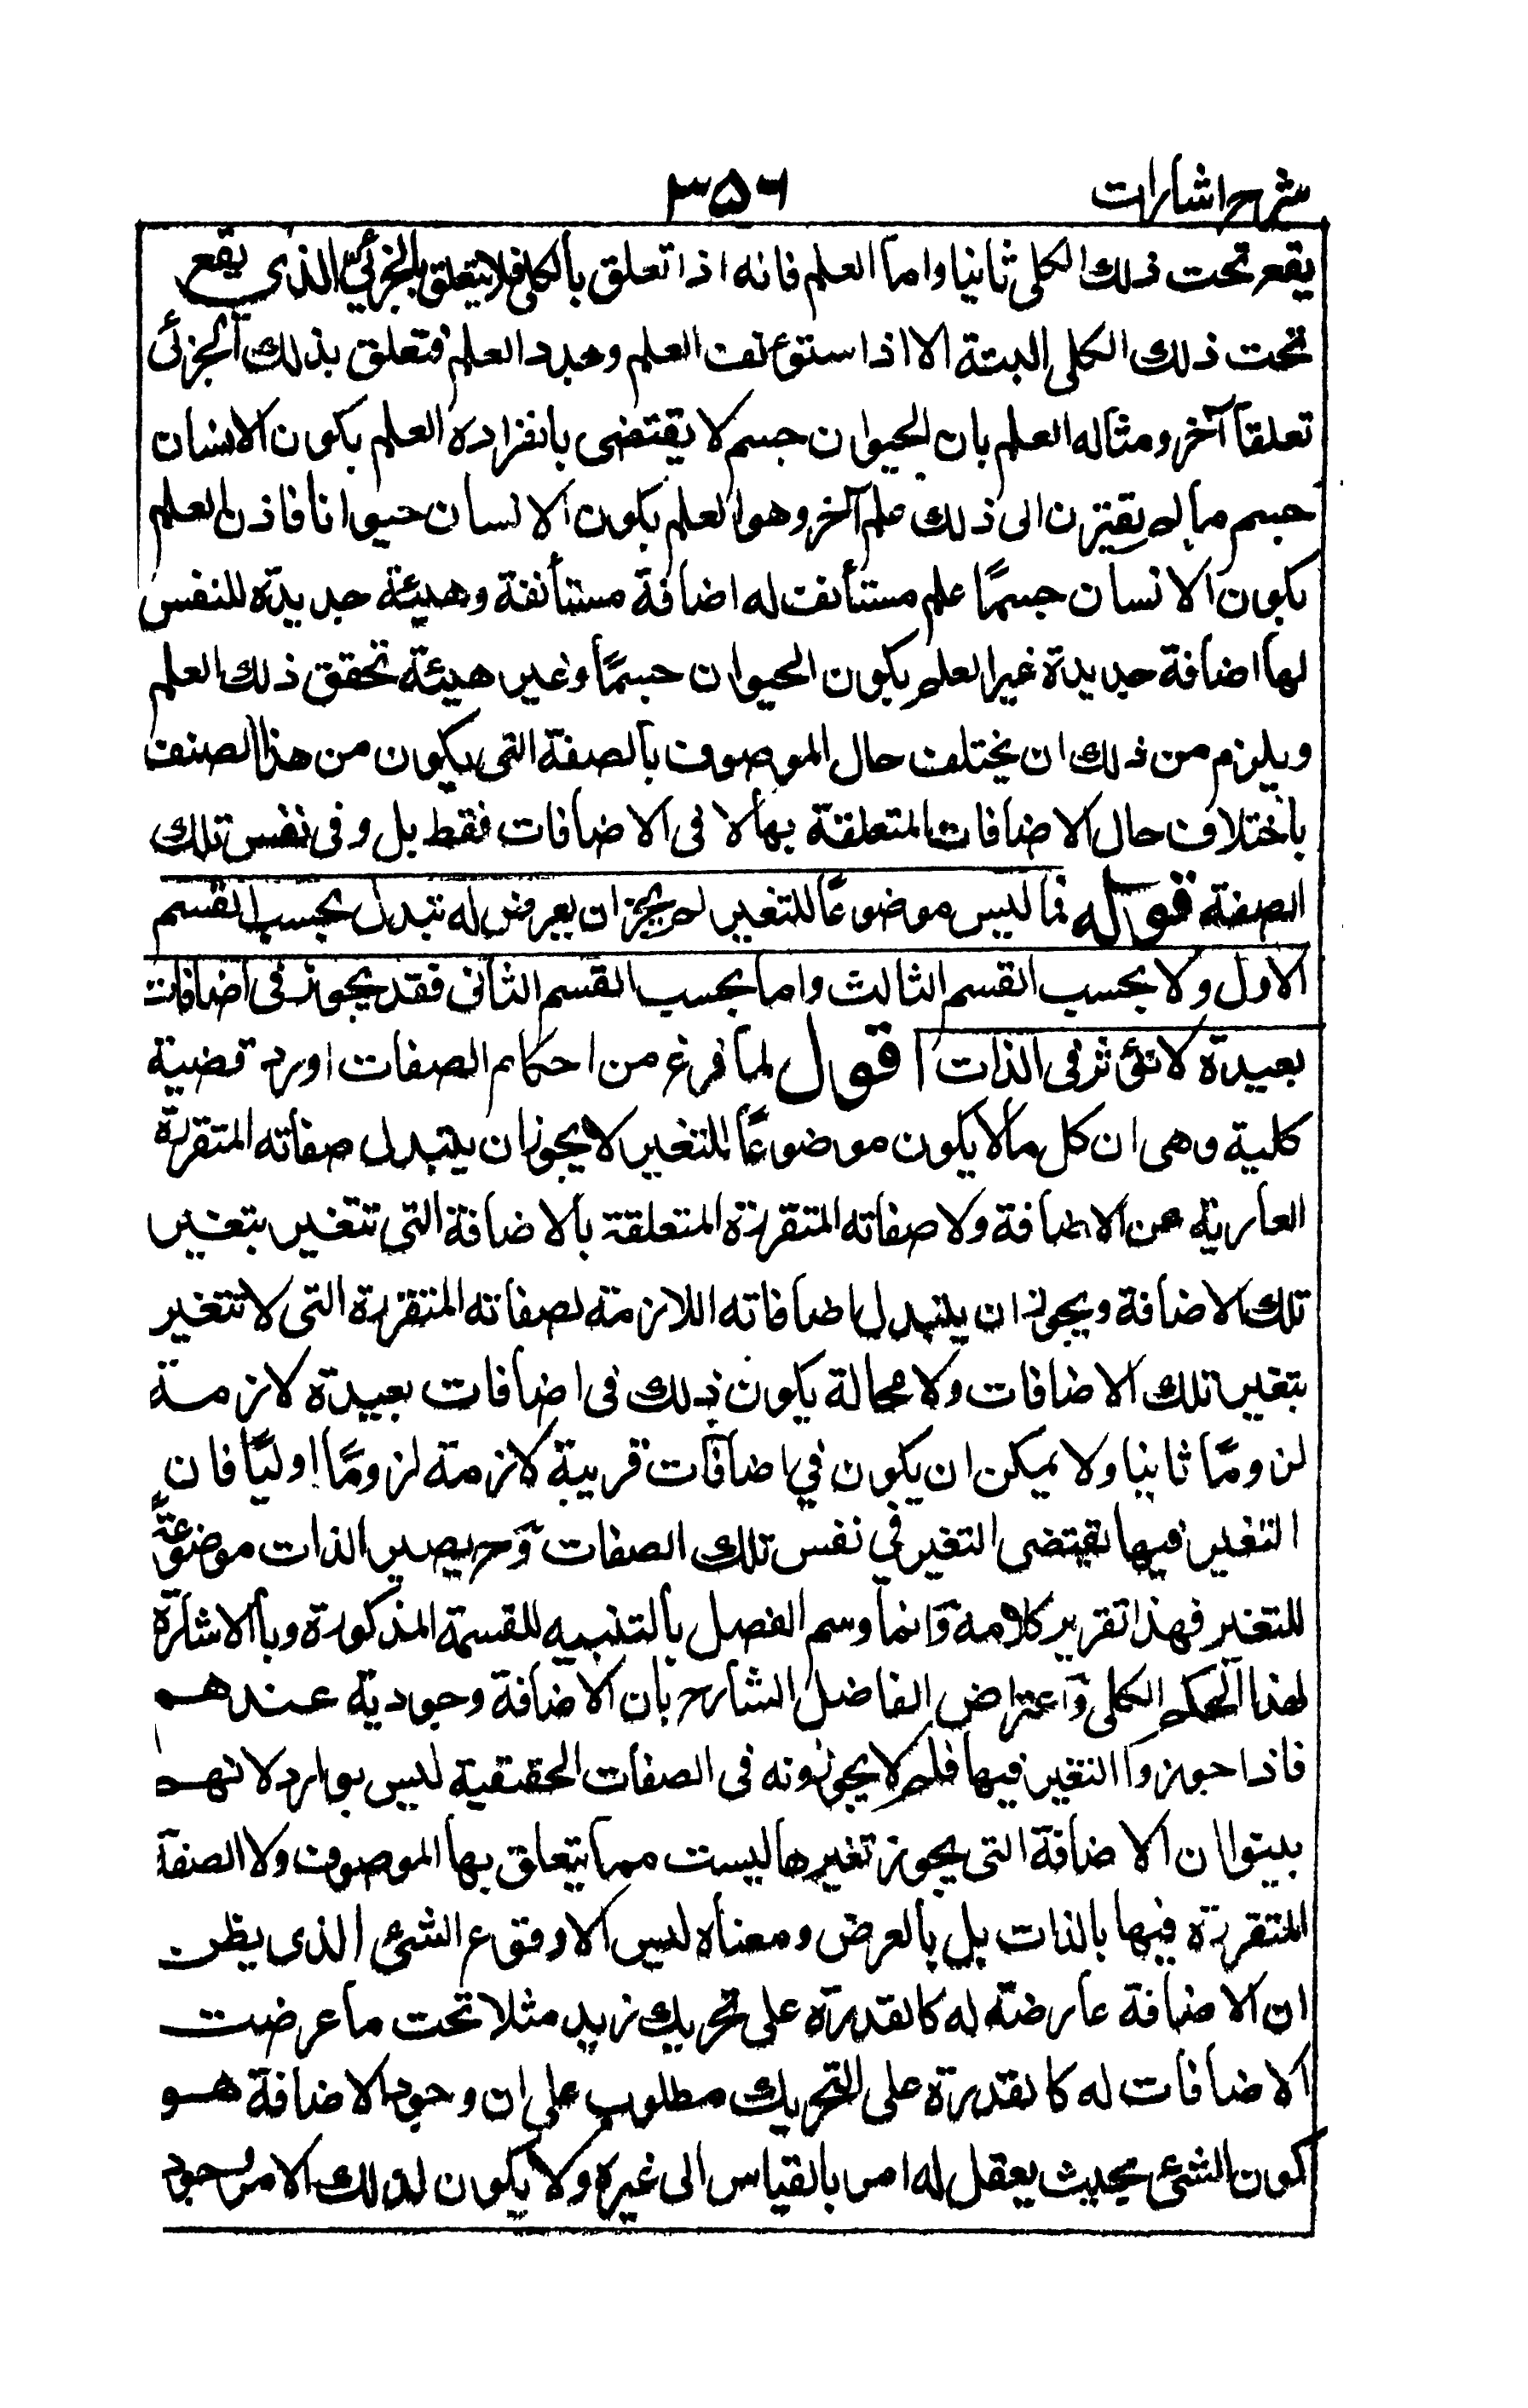 شرح اشارات ٣٥٦
يقع تحت ذلك الكلى ثانيا واما العلم فانه اذا تعلق بالكلى فلا يتعلق بالجزئى الذى يقع
تحت ذلك الكلى البتة الا اذا استؤنف العلم وجدد العلم فتعلق بذلك الجزئى
تعلقاً آخر ومثاله العلم بان الحيوان جسم لا يقتضى بانفراده العلم بكون الانسان
جسم ما لم يقترن الى ذلك علم آخر وهو العلم بكون الانسان حيوانا فاذن العلم
بكون الانسان جسمًا علم مستأنف له اضافة مستأنفة وهيئة جديدة للنفس
لها اضافة جديدة غير العلم بكون الحيوان جسمًا وغير هيئة تحقق ذلك العلم
ويلزم من ذلك ان يختلف حال الموصوف بالصفة التى يكون من هذا الصنف
باختلاف حال الاضافات المتعلقة بها لا فى الاضافات فقط بل وفى نفس تلك
الصفة قوله فما ليس موضوعًا للتغير لم يجز ان يعرض له تبدل بحسب القسم
الاول ولا بحسب القسم الثالث واما بحسب القسم الثانى فقد يجوز فى اضافات
بعيدة لا تؤثر فى الذات اقول لما فرغ من احكام الصفات اورد قضية
كلية وهى ان كل ما لا يكون موضوعًا للتغير لا يجوز ان يتبدل صفاته المتقررة
العارية عن الاضافة ولا صفاته المتقررة المتعلقة بالاضافة التى تتغير بتغير
تلك الاضافة ويجوز ان يتبدل اضافاته اللازمة لصفاته المتقررة التى لا تتغير
بتغير تلك الاضافات ولا محالة يكون ذلك فى اضافات بعيدة لازمة
لزومًا ثانيا ولا يمكن ان يكون في اضافات قريبة لازمة لزومًا اوليًا فان
التغير فيها يقتضى التغير في نفس تلك الصفات وح يصير الذات موضوعة
للتغير فهذا تقرير كلامه وانما وسم الفصل بالتنبيه للقسمة المذكورة وبالاشارة
لهذا الحكم الكلى واعتراض الفاضل الشارح بان الاضافة وجودية عندهم
فاذا جوزوا التغير فيها فلم لا يجوزونه فى الصفات الحقيقية ليس بوارد لانهم
بينوا ان الاضافة التى يجوز تغيرها ليست مما يتعلق بها الموصوف ولا الصفة
المتقررة فيها بالذات بل بالعرض ومعناه ليس الا وقوع الشئ الذى يظن
ان الاضافة عارضة له كالقدرة على تحريك زيد مثلا تحت ما عرضت
الاضافات له كالقدرة على التحريك مطلوب على ان وجود الاضافة هو
كون الشئ بحيث يعقل له امر بالقياس الى غيره ولا يكون لذلك الامر وجود